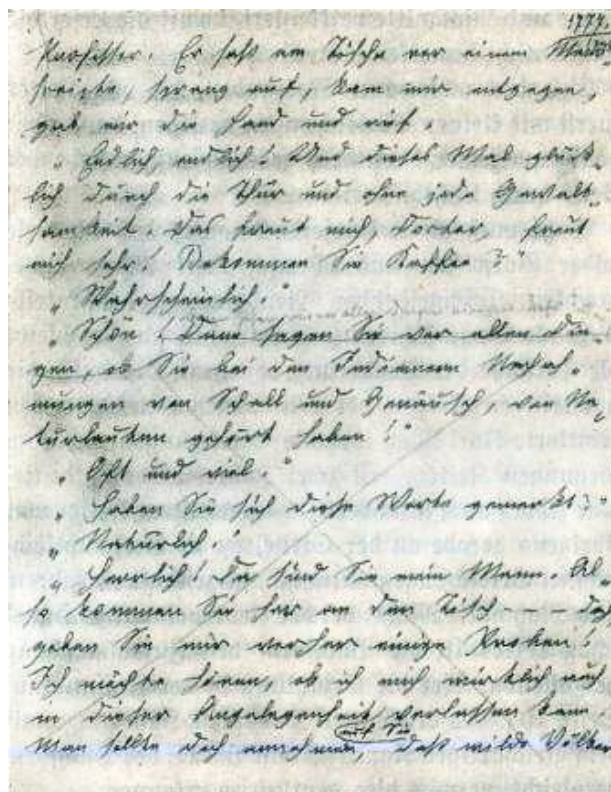 1774.
Professor. Er saß am Tische vor einem Manu-
scripte, sprang auf, kam mir entgegen,
gab mir die Hand und rief:
„Endlich, endlich! Und dieses Mal glück-
lich durch die Thür und ohne jede Gewalt-
samkeit. Das freut mich, Doctor, freut
mich sehr! Bekommen Sie Kaffee?"
„Wahrscheinlich."
„Schön! Dann sagen Sie vor allen Din-
gen, ob Sie bei den Indianern Nachah-
mungen von Schall und Geräusch, von Na-
turlauten gehört haben!"
„Oft und viel."
„Haben Sie sich diese Worte gemerkt?"
„Natürlich!"
„Herrlich! Da sind Sie mein Mann. Al-
so kommen Sie her an den Tisch — — doch
geben Sie mir vorher einige Proben!
Ich möchte hören, ob ich mich wirklich auch
in dieser Angelegenheit auf Sie verlassen kann.
Man sollte doch annehmen, daß wilde Völker